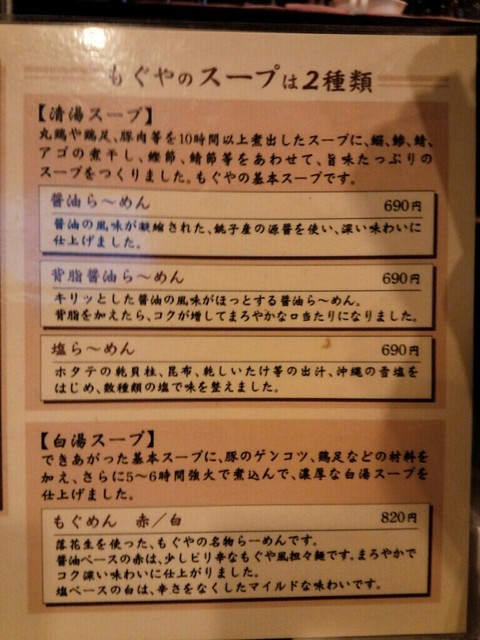 もぐやのスープは2種類
【清湯スープ】
丸鶏や鶏足、豚肉等を10時間以上煮出したスープに、鰯、鯵、鯖、
アゴの煮干し、鰹節、鯖節等をあわせて、旨味たっぷりの
スープをつくりました。もぐやの基本スープです。
醤油ら〜めん 690円
醤油の風味が凝縮された、銚子産の源醤を使い、深い味わいに
仕上げました。
背脂醤油ら〜めん 690円
キリッとした醤油の風味がほっとする醤油ら〜めん。
背脂を加えたら、コクが増してまろやかな口当たりになりました。
塩ら〜めん 690円
ホタテの乾貝柱、昆布、乾しいたけ等の出汁、沖縄の雪塩を
はじめ、数種類の塩で味を整えました。
【白湯スープ】
できあがった基本スープに、豚のゲンコツ、鶏足などの材料を
加え、さらに5〜6時間強火で煮込んで、濃厚な白湯スープを
仕上げました。
もぐめん 赤／白 820円
落花生を使った、もぐやの名物らーめんです。
醤油ベースの赤は、少しピリ辛なもぐや風担々麺です。まろやかで
コク深い味わいに仕上がりました。
塩ベースの白は、辛さをなくしたマイルドな味わいです。